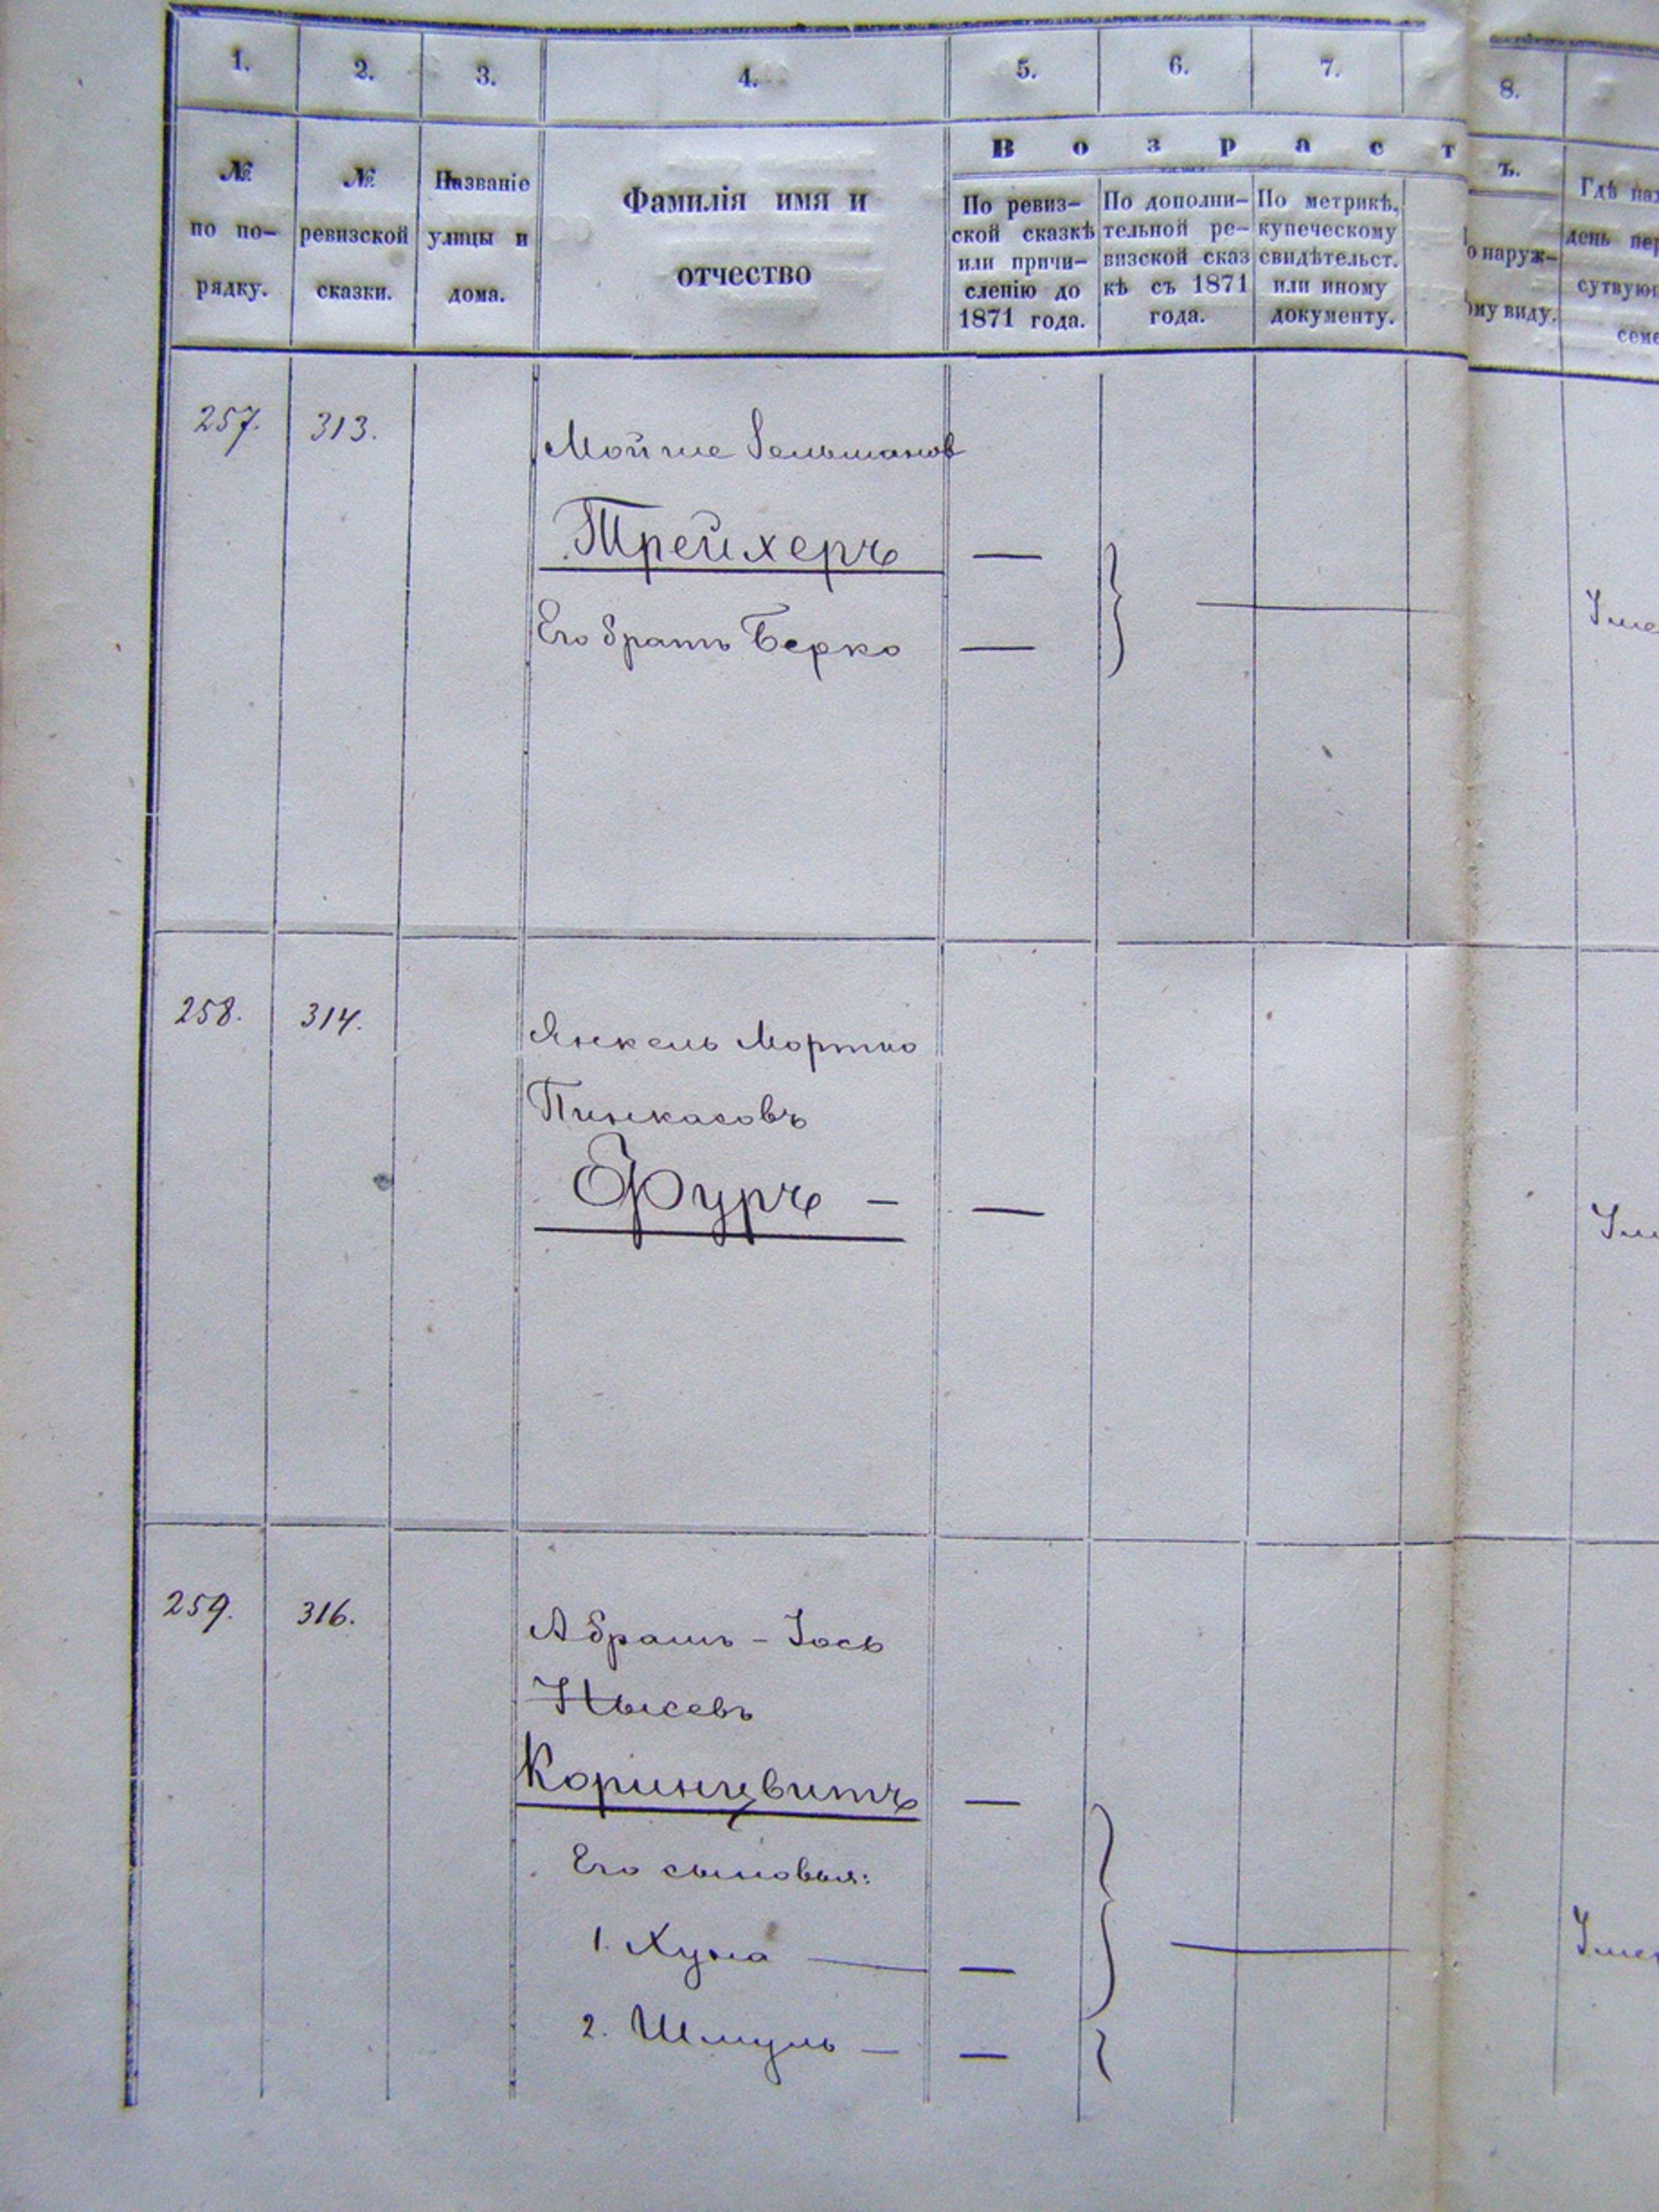 1. 2. 3. 4. 5. 6. 7. 8.
В о з р а с т ъ.
№ по по- рядку.
№ ревизской сказки.
Названіе улицы и дома.
Фамилія имя и отчество
По ревиз- ской сказкѣ или причи- сленію до 1871 года.
По дополни- тельной ре- визской сказ кѣ съ 1871 года.
По метрикѣ, купеческому свидѣтельст. или иному документу.
о наруж- ому виду.
Гдѣ нах
день пер
сутвующ
семе
257. 313. Мойше
Трейхеръ —
Его братъ Берко —
Уме
258. 314. Янкель Мортко
Пинкасовъ
Фуръ — —
Уме
259. 316. Абрамъ - Іось
Нысевъ
Коринцвитъ —
Его сыновья:
1. Хуна — —
Умер
2. Шмуль — —